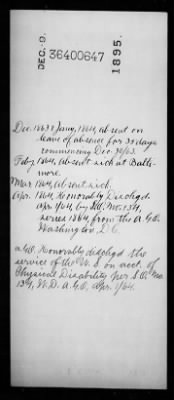 DEC. 9. 36400647 1895.
Dec. 1863 & Jany, 1864, absent on
leave of absence for 35 days
commencing Dec. 30/63.
Feby 1864, absent sick at Balti-
more.
Mar 1864, absent sick.
Apr. 1864, Honorably Dischgd.
Apr 1/64, by S.O. No. 134,
series 1864, from the A.G.O.
Washington, D.C.
A.G.O. Honorably dischgd the
service of the U.S. on acct. of
Physical Disability per S.O. No.
134, W.D. A.G.O. Apr. 1/64.